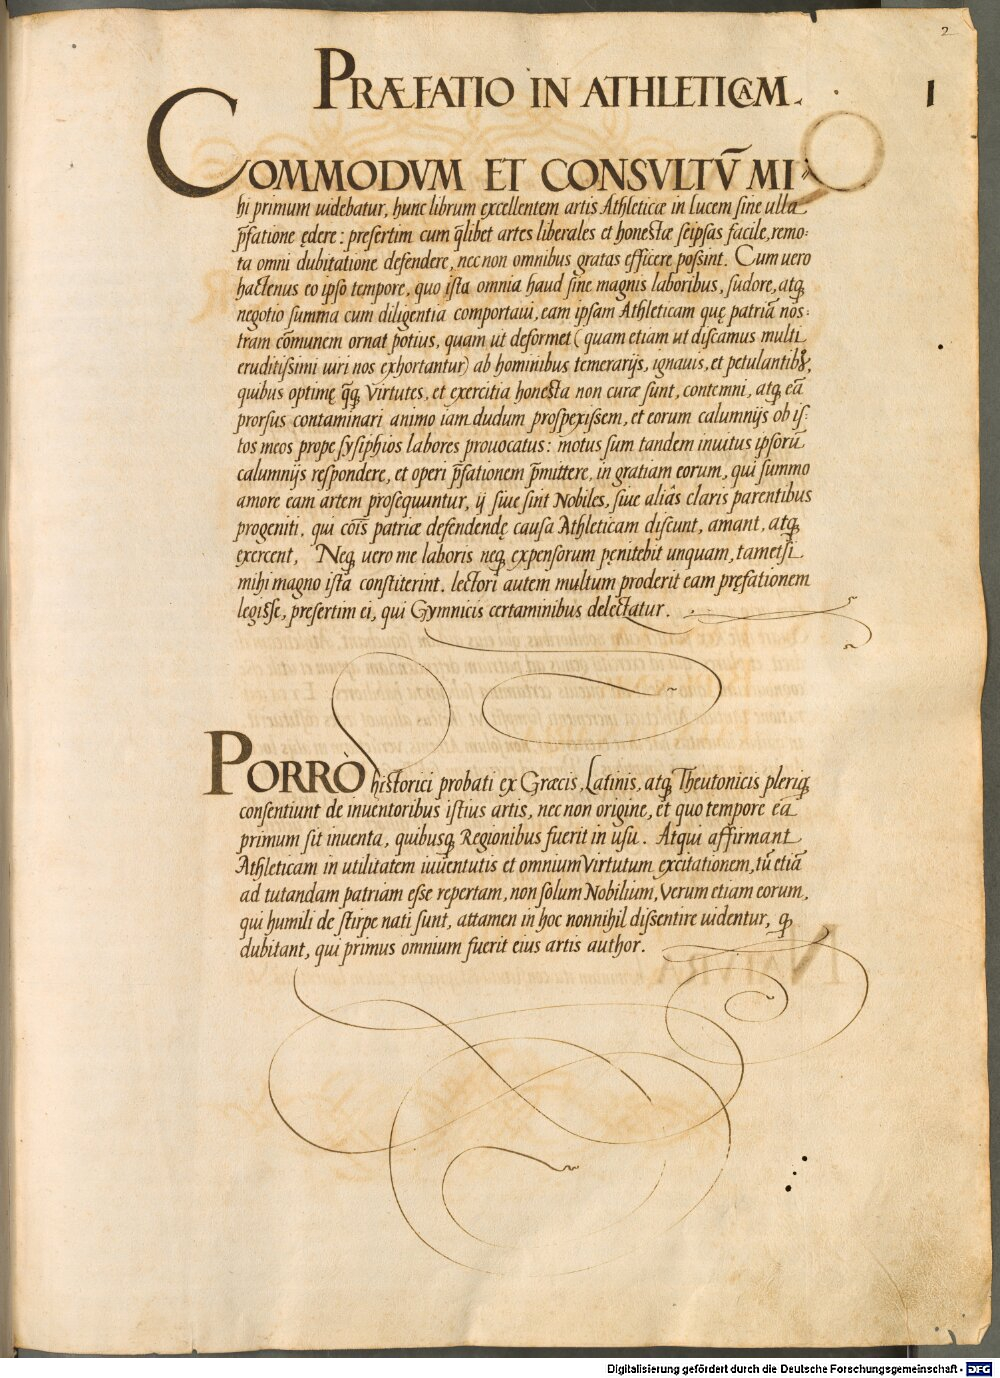 2
1
PRÆFATIO IN ATHLETICAM.
COMMODVM ET CONSVLTṼ MI-
hi primum uidebatur, hunc librum excellentem artis Athleticæ in lucem sine ulla
p̃fatione ędere: presertim cum q̃libet artes liberales et honestæ seipsas facile, remo:
ta omni dubitatione defendere, nec non omnibus gratas efficere possint. Cum uero
hactenus eo ipso tempore, quo ista omnia haud sine magnis laboribus, sudore, atq
negotio summa cum diligentia comportaui, eam ipsam Athleticam quę patriã nos:
tram cõmunem ornat potius, quam ut deformet (quam etiam ut discamus multi
eruditissimi uiri nos exhortantur) ab hominibus temerarijs, ignauis, et petulantibꝰ,
quibus optimę q̃q Virtutes, et exercitia honesta non curæ sunt, contemni, atq eã
prorsus contaminari animo iam dudum prospexissem, et eorum calumnijs ob is:
tos meos prope sysiphios labores prouocatus: motus sum tandem inuitus ipsorũ
calumnijs respondere, et operi p̃fationem p̃mittere, in gratiam eorum, qui summo
amore eam artem prosequuntur, ij siue sint Nobiles, siue aliâs claris parentibus
progeniti, qui cõis patriæ defendendę causa Athleticam discunt, amant, atq
exercent, Neq uero me laboris neq expensorum pęnitebit unquam, tametsi
mihi magno ista constiterint. lectori autem multum proderit eam pręfationem
legisse, presertim ei, qui Gymnicis certaminibus delectatur.
PORRÒ historici probati ex Græcis, Latinis, atq Theutonicis pleriq
consentiunt de inuentoribus istius artis, nec non origine, et quo tempore ea
primum sit inuenta, quibusq Regionibus fuerit in usu. Atqui affirmant
Athleticam in utilitatem iuuentutis et omnium Virtutum excitationem, tũ etiã
ad tutandam patriam esse repertam, non solum Nobilium, Verum etiam eorum,
qui humili de stirpe nati sunt, attamen in hoc nonnihil dissentire uidentur, q
dubitant, qui primus omnium fuerit eius artis author.
Digitalisierung gefördert durch die Deutsche Forschungsgemeinschaft - DFG